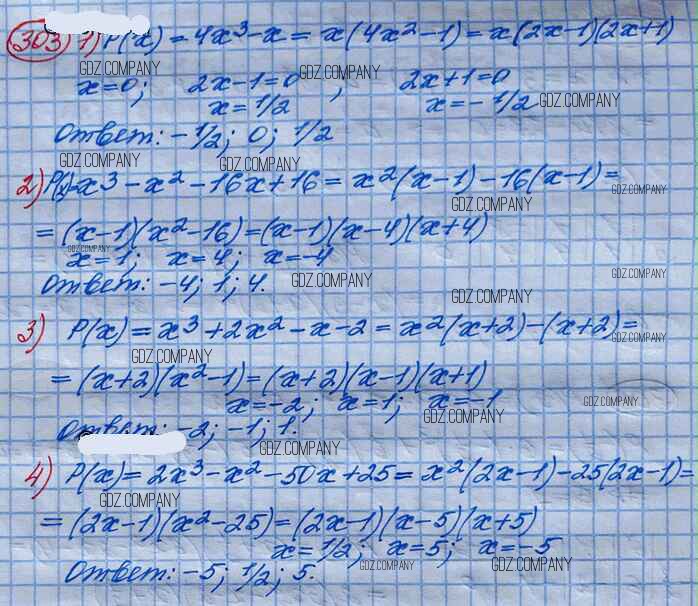 303) 1) P(x) = 4x³-x = x(4x²-1) = x(2x-1)(2x+1)
GDZ.COMPANY
x=0; 2x-1=0, 2x+1=0
GDZ.COMPANY
x=1/2 x=-1/2
GDZ.COMPANY
Ответ: -1/2; 0; 1/2
GDZ.COMPANY GDZ.COMPANY
2) P(x)=x³-x²-16x+16 = x²(x-1)-16(x-1)=
GDZ.COMPANY
GDZ.COMPANY
= (x-1)(x²-16)=(x-1)(x-4)(x+4)
GDZ.COMPANY
x=1; x=4; x=-4
Ответ: -4; 1; 4.
GDZ.COMPANY GDZ.COMPANY
GDZ.COMPANY
3) P(x) = x³+2x²-x-2 = x²(x+2)-(x+2)=
GDZ.COMPANY
GDZ.COMPANY
= (x+2)(x²-1)=(x+2)(x-1)(x+1)
x=-2; x=1; x=-1
GDZ.COMPANY GDZ.COMPANY
Ответ: -2; -1; 1.
GDZ.COMPANY
4) P(x) = 2x³-x²-50x+25 = x²(2x-1)-25(2x-1)=
GDZ.COMPANY
= (2x-1)(x²-25)=(2x-1)(x-5)(x+5)
x=1/2; x=5; x=-5
Ответ: -5; 1/2; 5.
GDZ.COMPANY GDZ.COMPANY